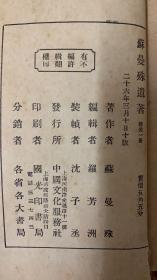 蘇曼殊遺著
實價五角五分
二十六年三月十日十版
著作者 蘇曼殊
編輯者 羅芳洲
裝幀者 沈子丞
發行所 中國文化服務社
印刷者 國光印書局
分銷者 各省各大書局
有不
編許
輯翻
權印